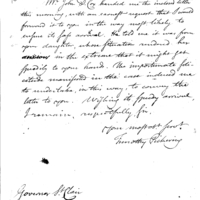 Mr. John D. Coxe handed me the inclosed letter
this morning, with an earnest request that I would
forward it to you in the way most likely to
ensure its safe arrival. He told me it was from
your daughter, whose situation rendered her
anxious in the extreme that it might get
speedily to your hands. The importunate so-
licitude manifested in the case induced me
to undertake, in this way, to convey the
letter to you. Wishing it a speedy arrival
I remain, respectfully, sir,
your most obt servt
Timothy Pickering
Governor St. Clair